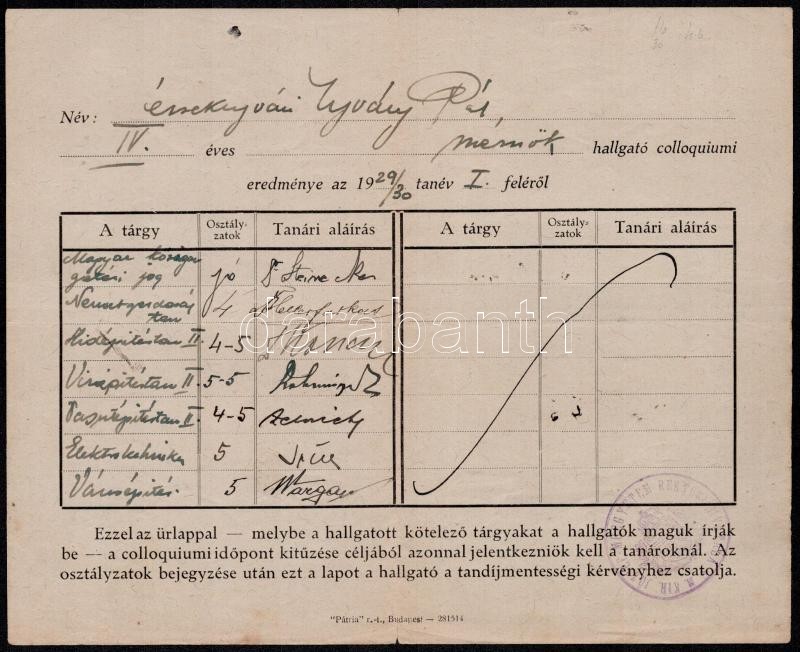 Név: érsekujvári Pál,
IV. éves mérnök hallgató colloquiumi
eredménye az 1929/30 tanév I. feléről
A tárgy Osztály-zatok Tanári aláírás A tárgy Osztály-zatok Tanári aláírás
Magyar közigaz
gatási jog jó Dr
Nemzetgazdaság
tan 4
Hidépitéstan II 4-5
Vizépitéstan II 5-5
Vasutépitéstan II 4-5
Elektrotechnika 5
Városépités. 5 Wargay
darabanth
Ezzel az ürlappal — melybe a hallgatott kötelező tárgyakat a hallgatók maguk írják
be — a colloquiumi időpont kitűzése céljából azonnal jelentkezniök kell a tanároknál. Az
osztályzatok bejegyzése után ezt a lapot a hallgató a tandíjmentességi kérvényhez csatolja.
"Pátria" r.-t., Budapest — 281514